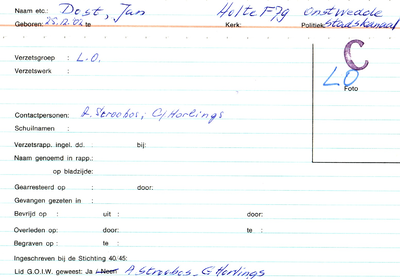 Naam etc.: Dost, Jan Holte F79 Onstwedde
Geboren: 25.12.02 te Kerk: Politiek: Stadskanaal
C
LO
Foto
Verzetsgroep : L.O.
Verzetswerk :
Contactpersonen: A. Stroobos; G Harlings
Schuilnaam :
Verzetsrapp. ingel. dd. : bij:
Naam genoemd in rapp.:
op bladzijde:
Gearresteerd op : door:
Gevangen gezeten in :
Bevrijd op : uit : door:
Overleden op: door: te :
Begraven op : te :
Ingeschreven bij de Stichting 40/45:
Lid G.O.I.W. geweest: Ja Neen A Stroobos - G Harlings